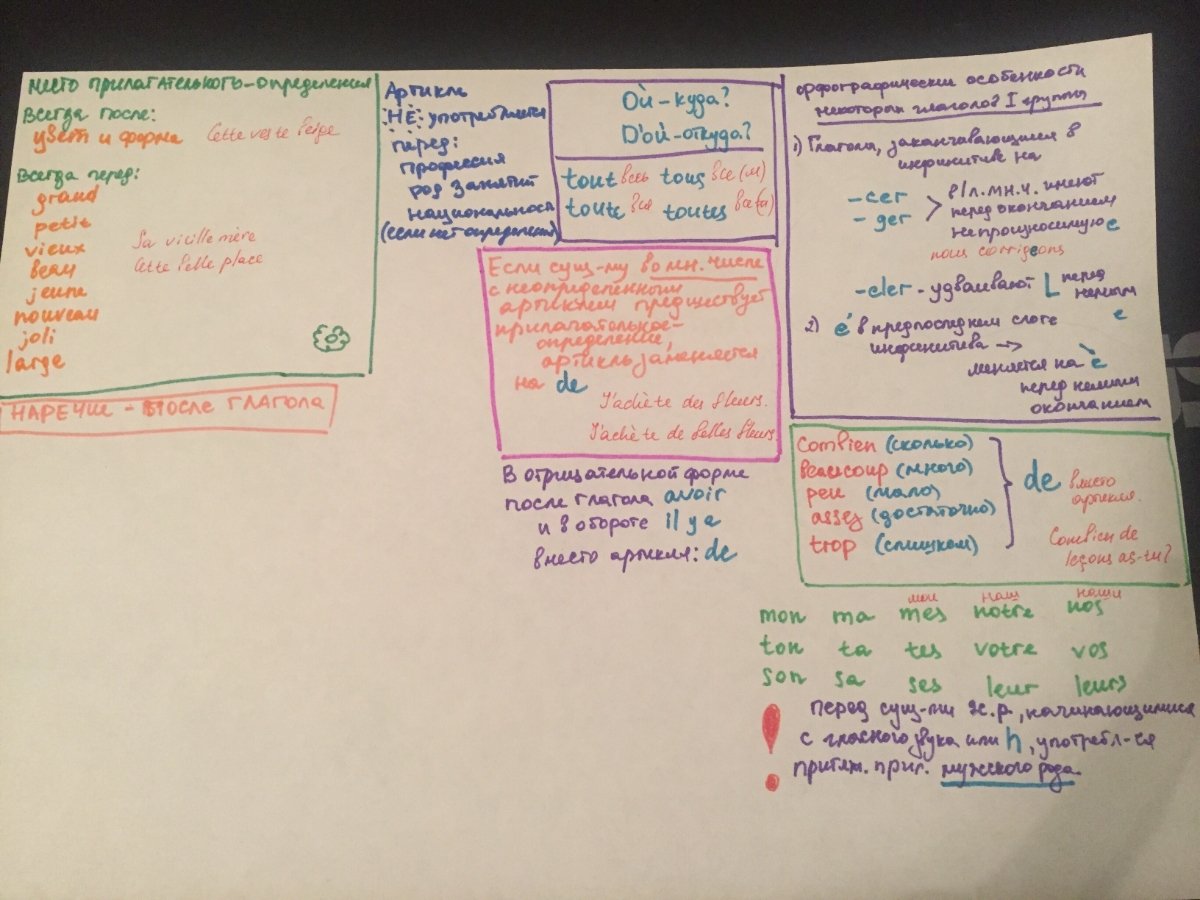 место прилагательного-определения
Всегда после:
цвет и форма Cette veste beige
Всегда перед:
grand
petit
vieux Sa vieille mère
beau Cette belle place
jeune
nouveau
joli
large
НАРЕЧИЕ - ПОСЛЕ ГЛАГОЛА
Артикль
НЕ употребляется
перед:
профессия
род занятий
национальность
(если нет определения)
Où - куда?
D'où - откуда?
tout весь tous все (м)
toute вся toutes все (ж)
Если сущ-му во мн. числе
с неопределённым
артиклем предшествует
прилагательное-
определение,
артикль заменяется
на de
J'achète des fleurs.
J'achète de belles fleurs
В отрицательной форме
после глагола avoir
и в обороте il y a
вместо артикля: de
орфографические особенности
некоторых глаголов I группы
1) Глаголы, заканчивающиеся в
инфинитиве на
-cer
- ger
в 1 л. мн. ч. имеют
перед окончанием
непроизносимую e
nous corrigeons
-eler - удваивают L перед
немым
e
2) é в предпоследнем слоге
инфинитива →
меняется на è
перед немым
окончанием
Combien (сколько)
Beaucoup (много)
peu (мало)
assez (достаточно)
trop (слишком)
de вместо
артикля.
Combien de
leçons as-tu?
мои наш наши
mon ma mes notre nos
ton ta tes votre vos
son sa ses leur leurs
! перед сущ-ми ж.р., начинающимися
с гласного звука или h, употребл-ся
притяж. прил. мужского рода.